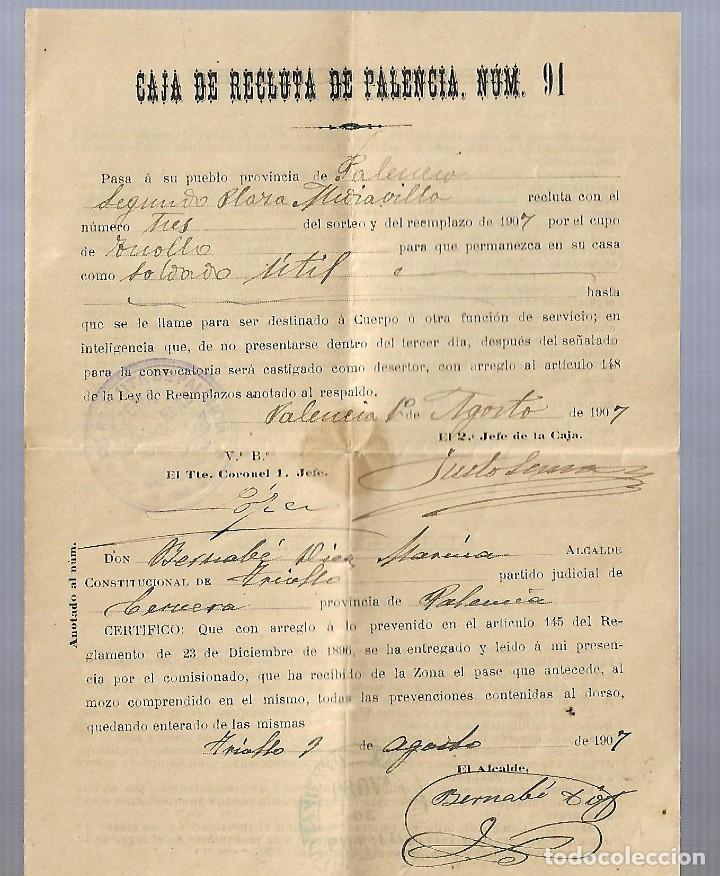 CAJA DE RECLUTA DE PALENCIA, NÚM. 91
Pasa á su pueblo provincia de Palencia
Segundo Plaza Mediavilla recluta con el
número tres del sorteo y del reemplazo de 1907 por el cupo
de Triollo para que permanezca en su casa
como Soldado Útil
hasta
que se le llame para ser destinado á Cuerpo ú otra función de servicio; en
inteligencia que, de no presentarse dentro del tercer día, después del señalado
para la convocatoria será castigado como desertor, con arreglo al artículo 148
de la Ley de Reemplazos anotado al respaldo.
Palencia 1º de Agosto de 1907
El 2.º Jefe de la Caja.
V.º B.º
El Tte. Coronel 1. Jefe.
Anotado al núm.
DON Bernabé Díez Marina ALCALDE
CONSTITUCIONAL DE Triollo partido judicial de
Cervera provincia de Palencia
CERTIFICO: Que con arreglo á lo prevenido en el artículo 145 del Re-
glamento de 23 de Diciembre de 1896, se ha entregado y leído á mi presen-
cia por el comisionado, que ha recibido de la Zona el pase que antecede, al
mozo comprendido en el mismo, todas las prevenciones contenidas al dorso,
quedando enterado de las mismas
Triollo 9 de agosto de 1907
El Alcalde,
Bernabé Díez
todocoleccion